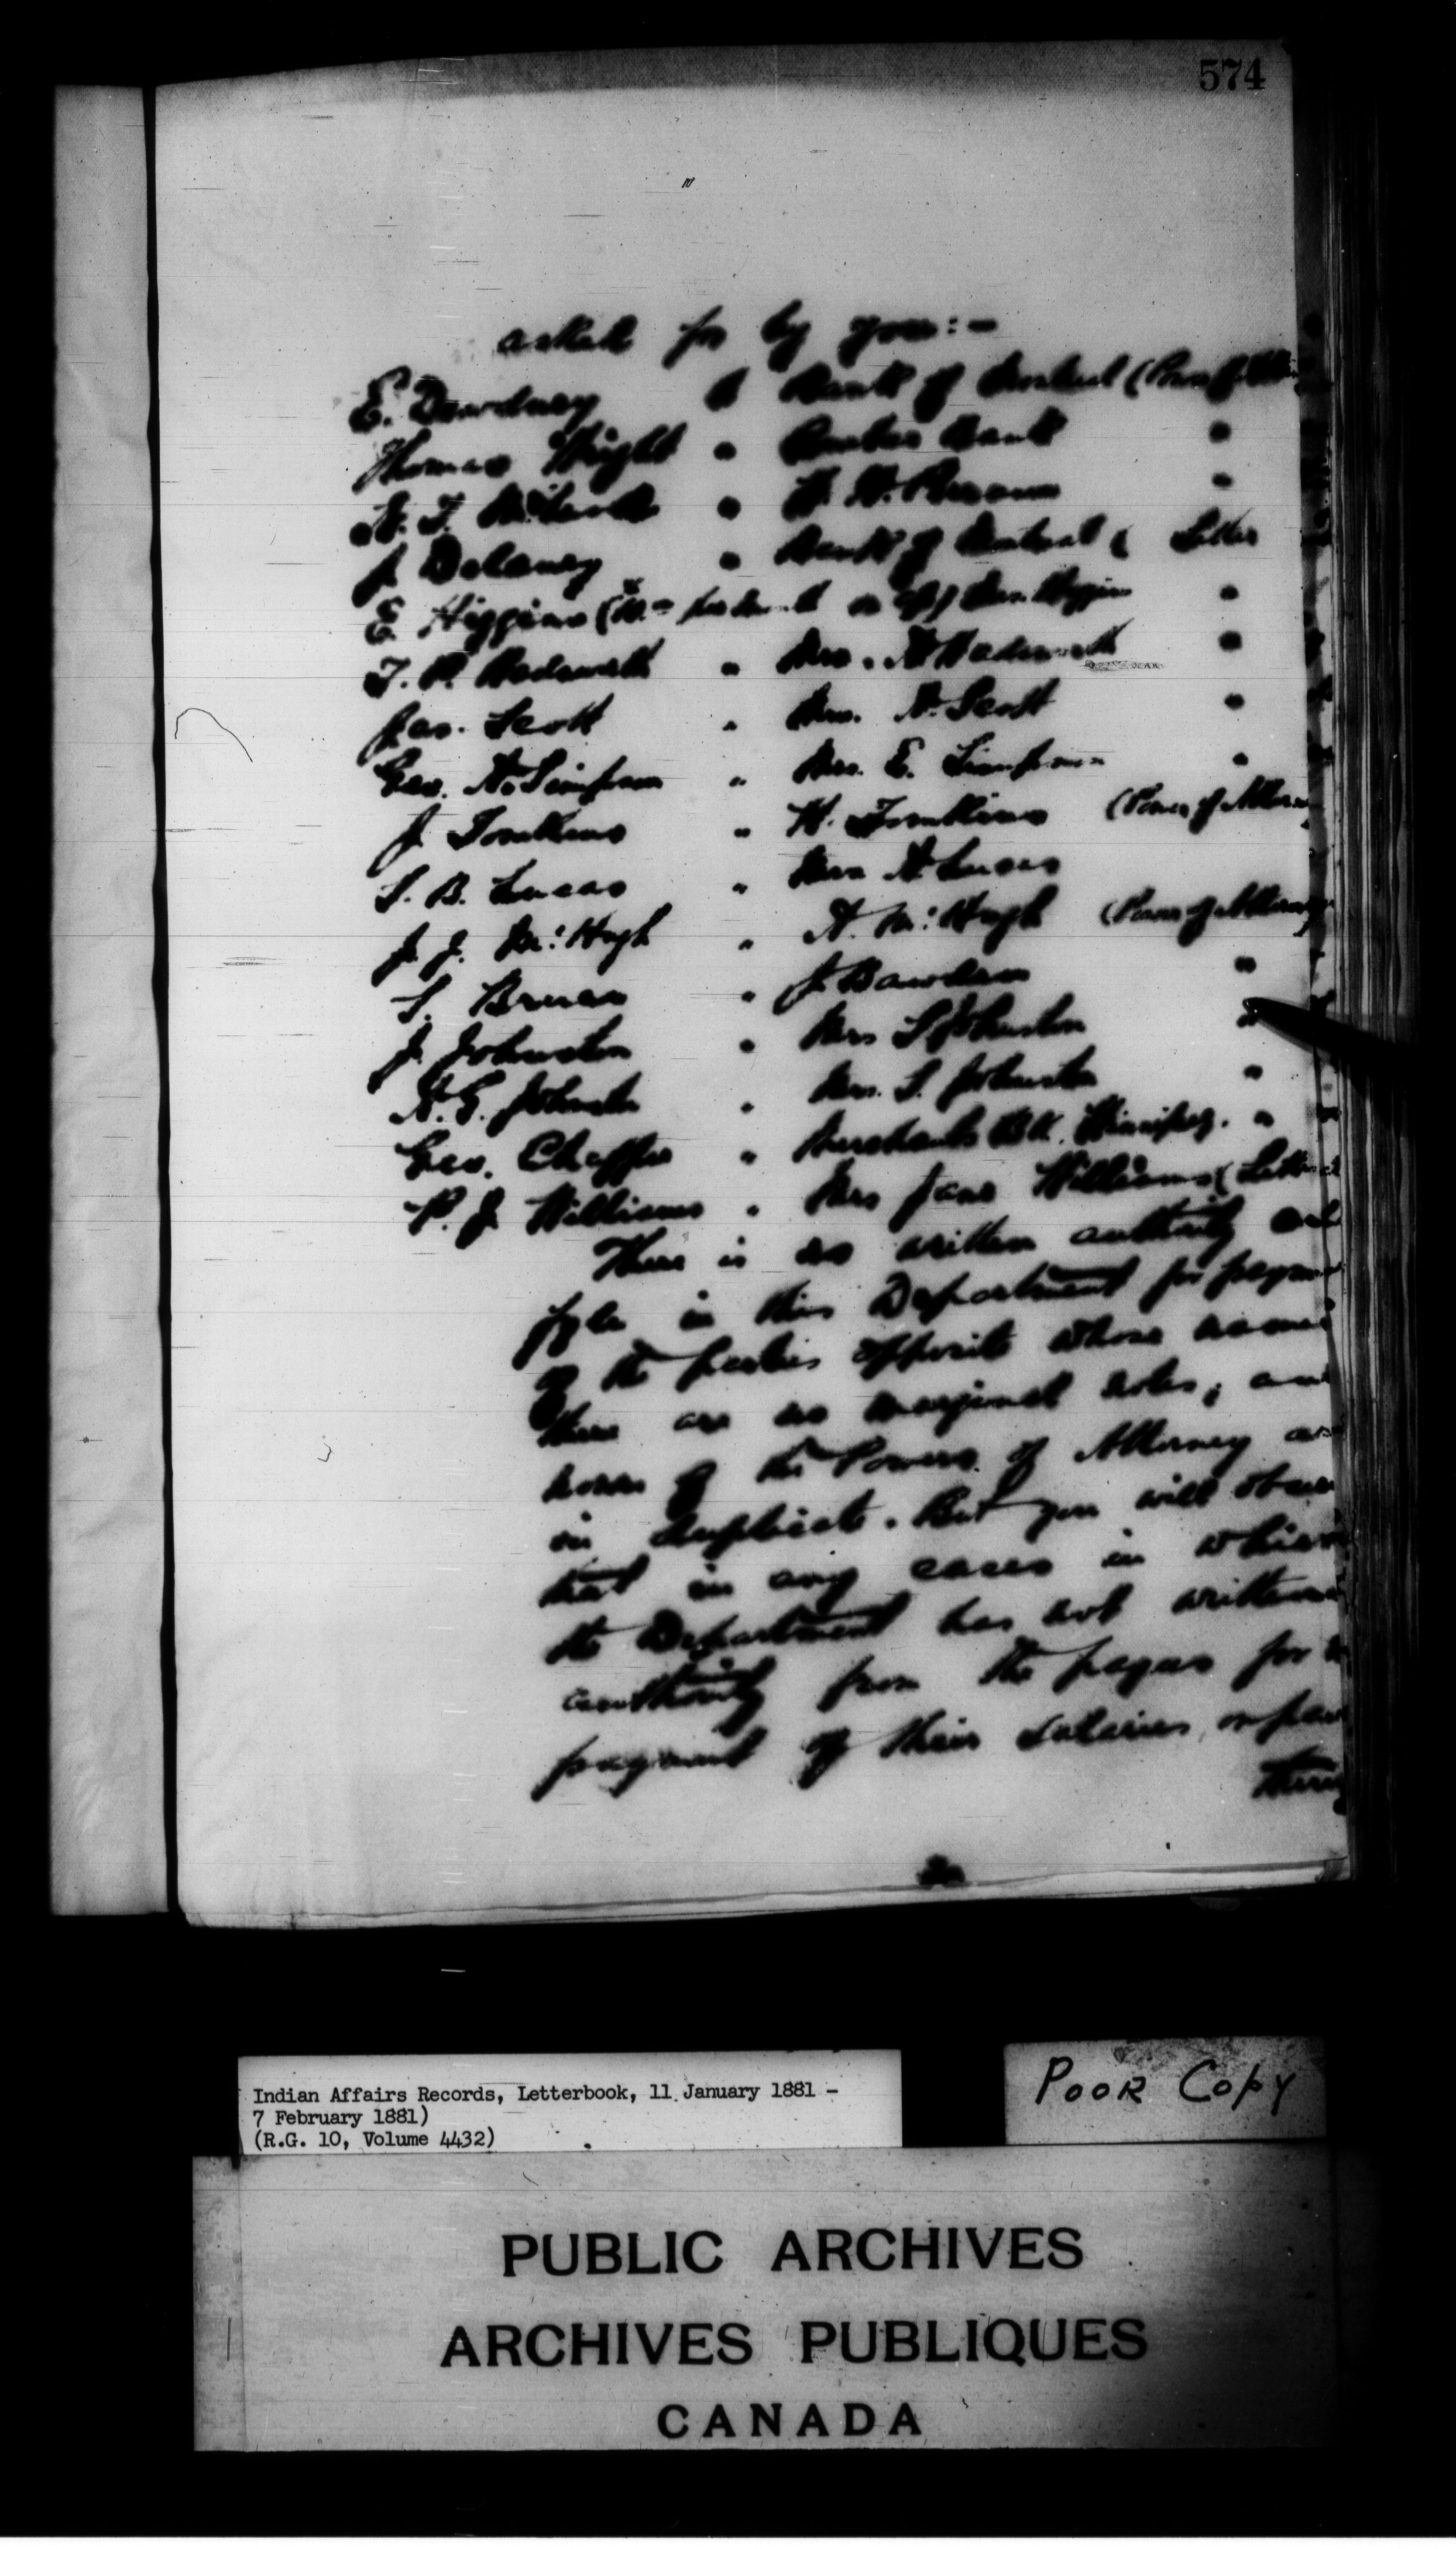 574
asked for by you:-
E. Dewdney Bank of Montreal (Power of
Thomas Wright " Quebec Bank "
" "
J Delaney " Bank of Montreal ( Letter
E. Higgins ( Mrs. Higgins "
T. P. Wadsworth " Mrs. Wadsworth "
Jas. Scott " Mrs. Scott "
Geo. Simpson " Mrs. E. Simpson "
J Tomkins " Tomkins (Power of Attorney
S. B. Lucas " Mrs Lucas
J. J. McHugh " McHugh (Power of Attorney
S. " J "
J. Johnston " Mrs S Johnston "
Johnston " Mrs. S. Johnston "
Geo. " Merchants Bk. Winnipeg. "
P. J. Williams " Mrs Jane Williams (Letter
There is no written authority on
fyle in this Department for
of the parties opposite whose names
there are no marginal notes; and
none of the Powers of Attorney are
in duplicate. But you will
that in any cases in which
the Department has not written
authority from the payees for
payment of their salaries, or
Indian Affairs Records, Letterbook, 11 January 1881 -
7 February 1881)
(R.G. 10, Volume 4432)
Poor Copy
PUBLIC ARCHIVES
ARCHIVES PUBLIQUES
CANADA